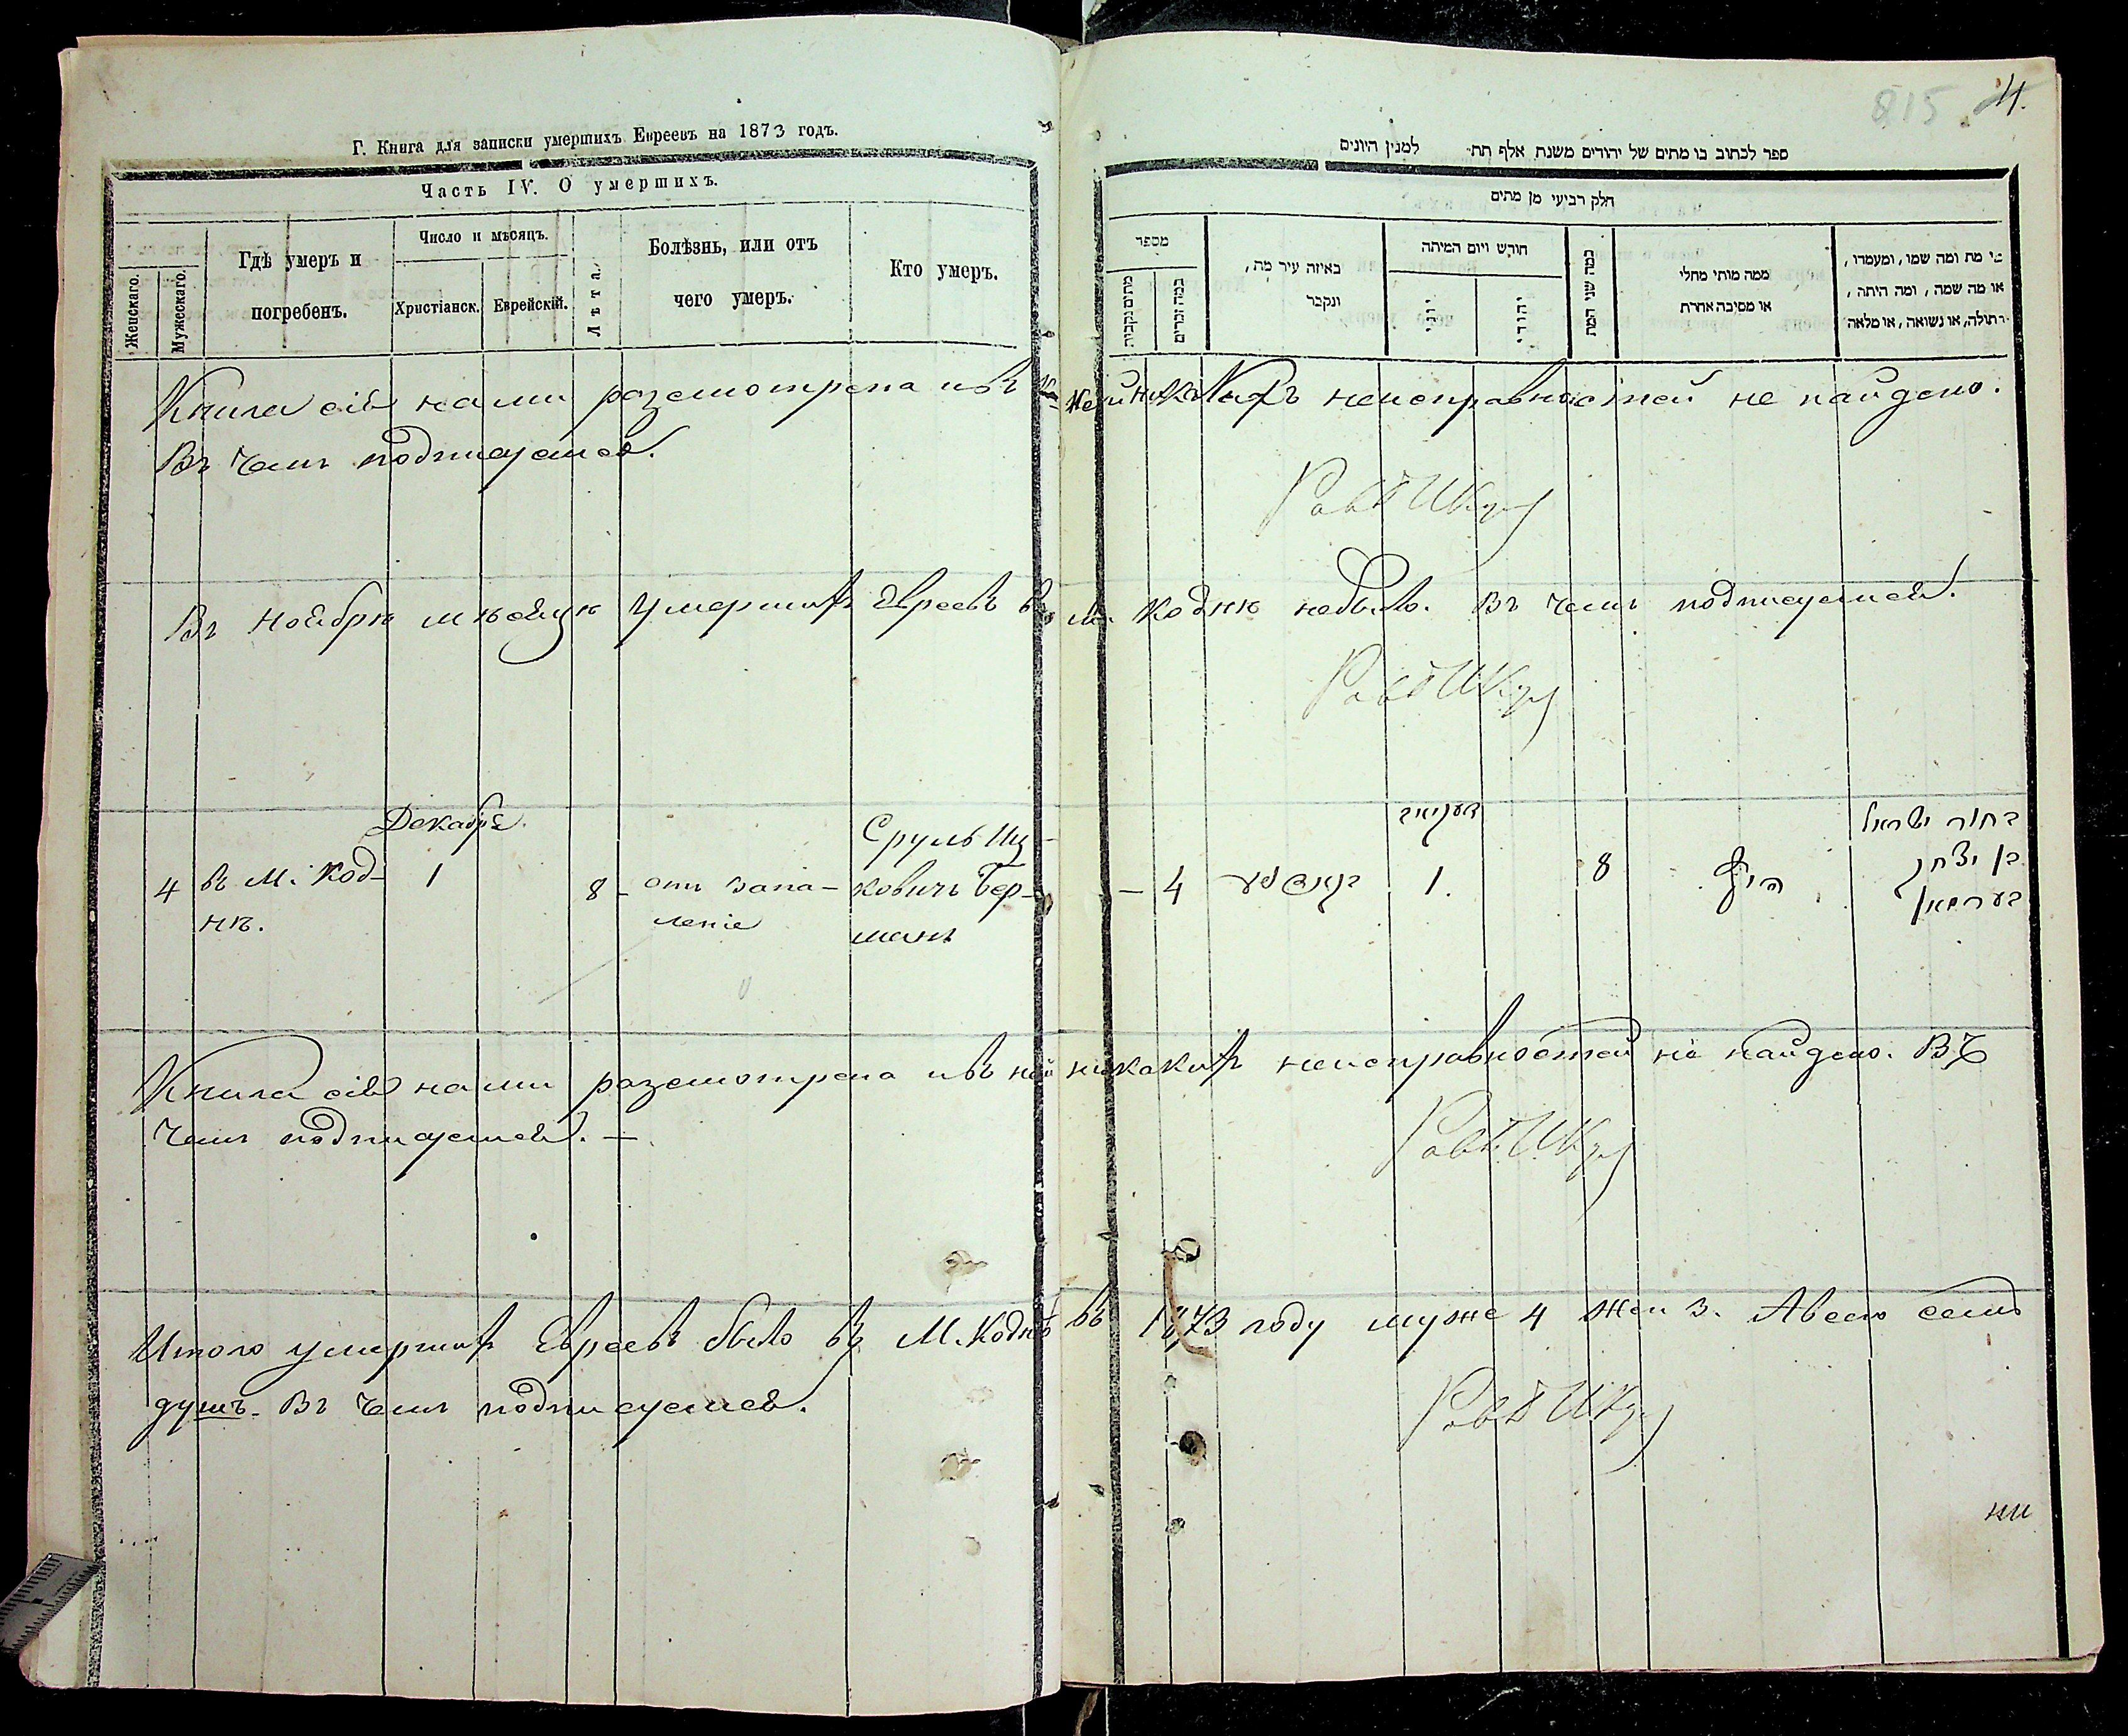 815 4.
Г. Книга для записки умершихъ Евреевъ на 1873 годъ.
Часть IV. О умершихъ.
Женскаго.
Мужескаго.
Гдѣ умеръ и
погребенъ.
Число и мѣсяцъ.
Христіанск.
Еврейскій.
Лѣта.
Болѣзнь, или отъ
чего умеръ.
Кто умеръ.
ספר לכתוב בו מתים של יהודים משנת אלף תת למנין היונים
חלק רביעי מן מתים
מספר
מתים נקבות
כמה זכרים
באיזה עיר מת,
ונקבר
חודש ויום המיתה
יוני
יהודי
כמה שני המת
ממה מותי מחלי
או מסיבה אחרת
מי מת ומה שמו, ומעמדו,
או מה שמה, ומה היתה,
בתולה, או נשואה, או מלאה
Книга сія нами разсмотрена и въ ней никакихъ неисправностей не найдено.
Въ чемъ подписуемся.
Въ Ноябрѣ мѣсяцѣ умершихъ Евреевъ въ м. Коднѣ небыло. Въ чемъ подписуемся.
Декабрь.
4 въ М. Код-
нѣ.
1
8 - отъ запа-
леніе
Сруль Иц-
ковичъ Бер-
манъ
- 4
דעקאבר
1.
8
בחור ישראל
בן יצחק
בערמאן
Книга сія нами разсмотрена и въ ней никакихъ неисправностей не найдено. Въ
чемъ подписуемся. —
Итого умершихъ Евреевъ было въ М. Коднѣ въ 1873 году муже 4 жен 3. А всего семь
душъ - Въ чемъ подписуемся.